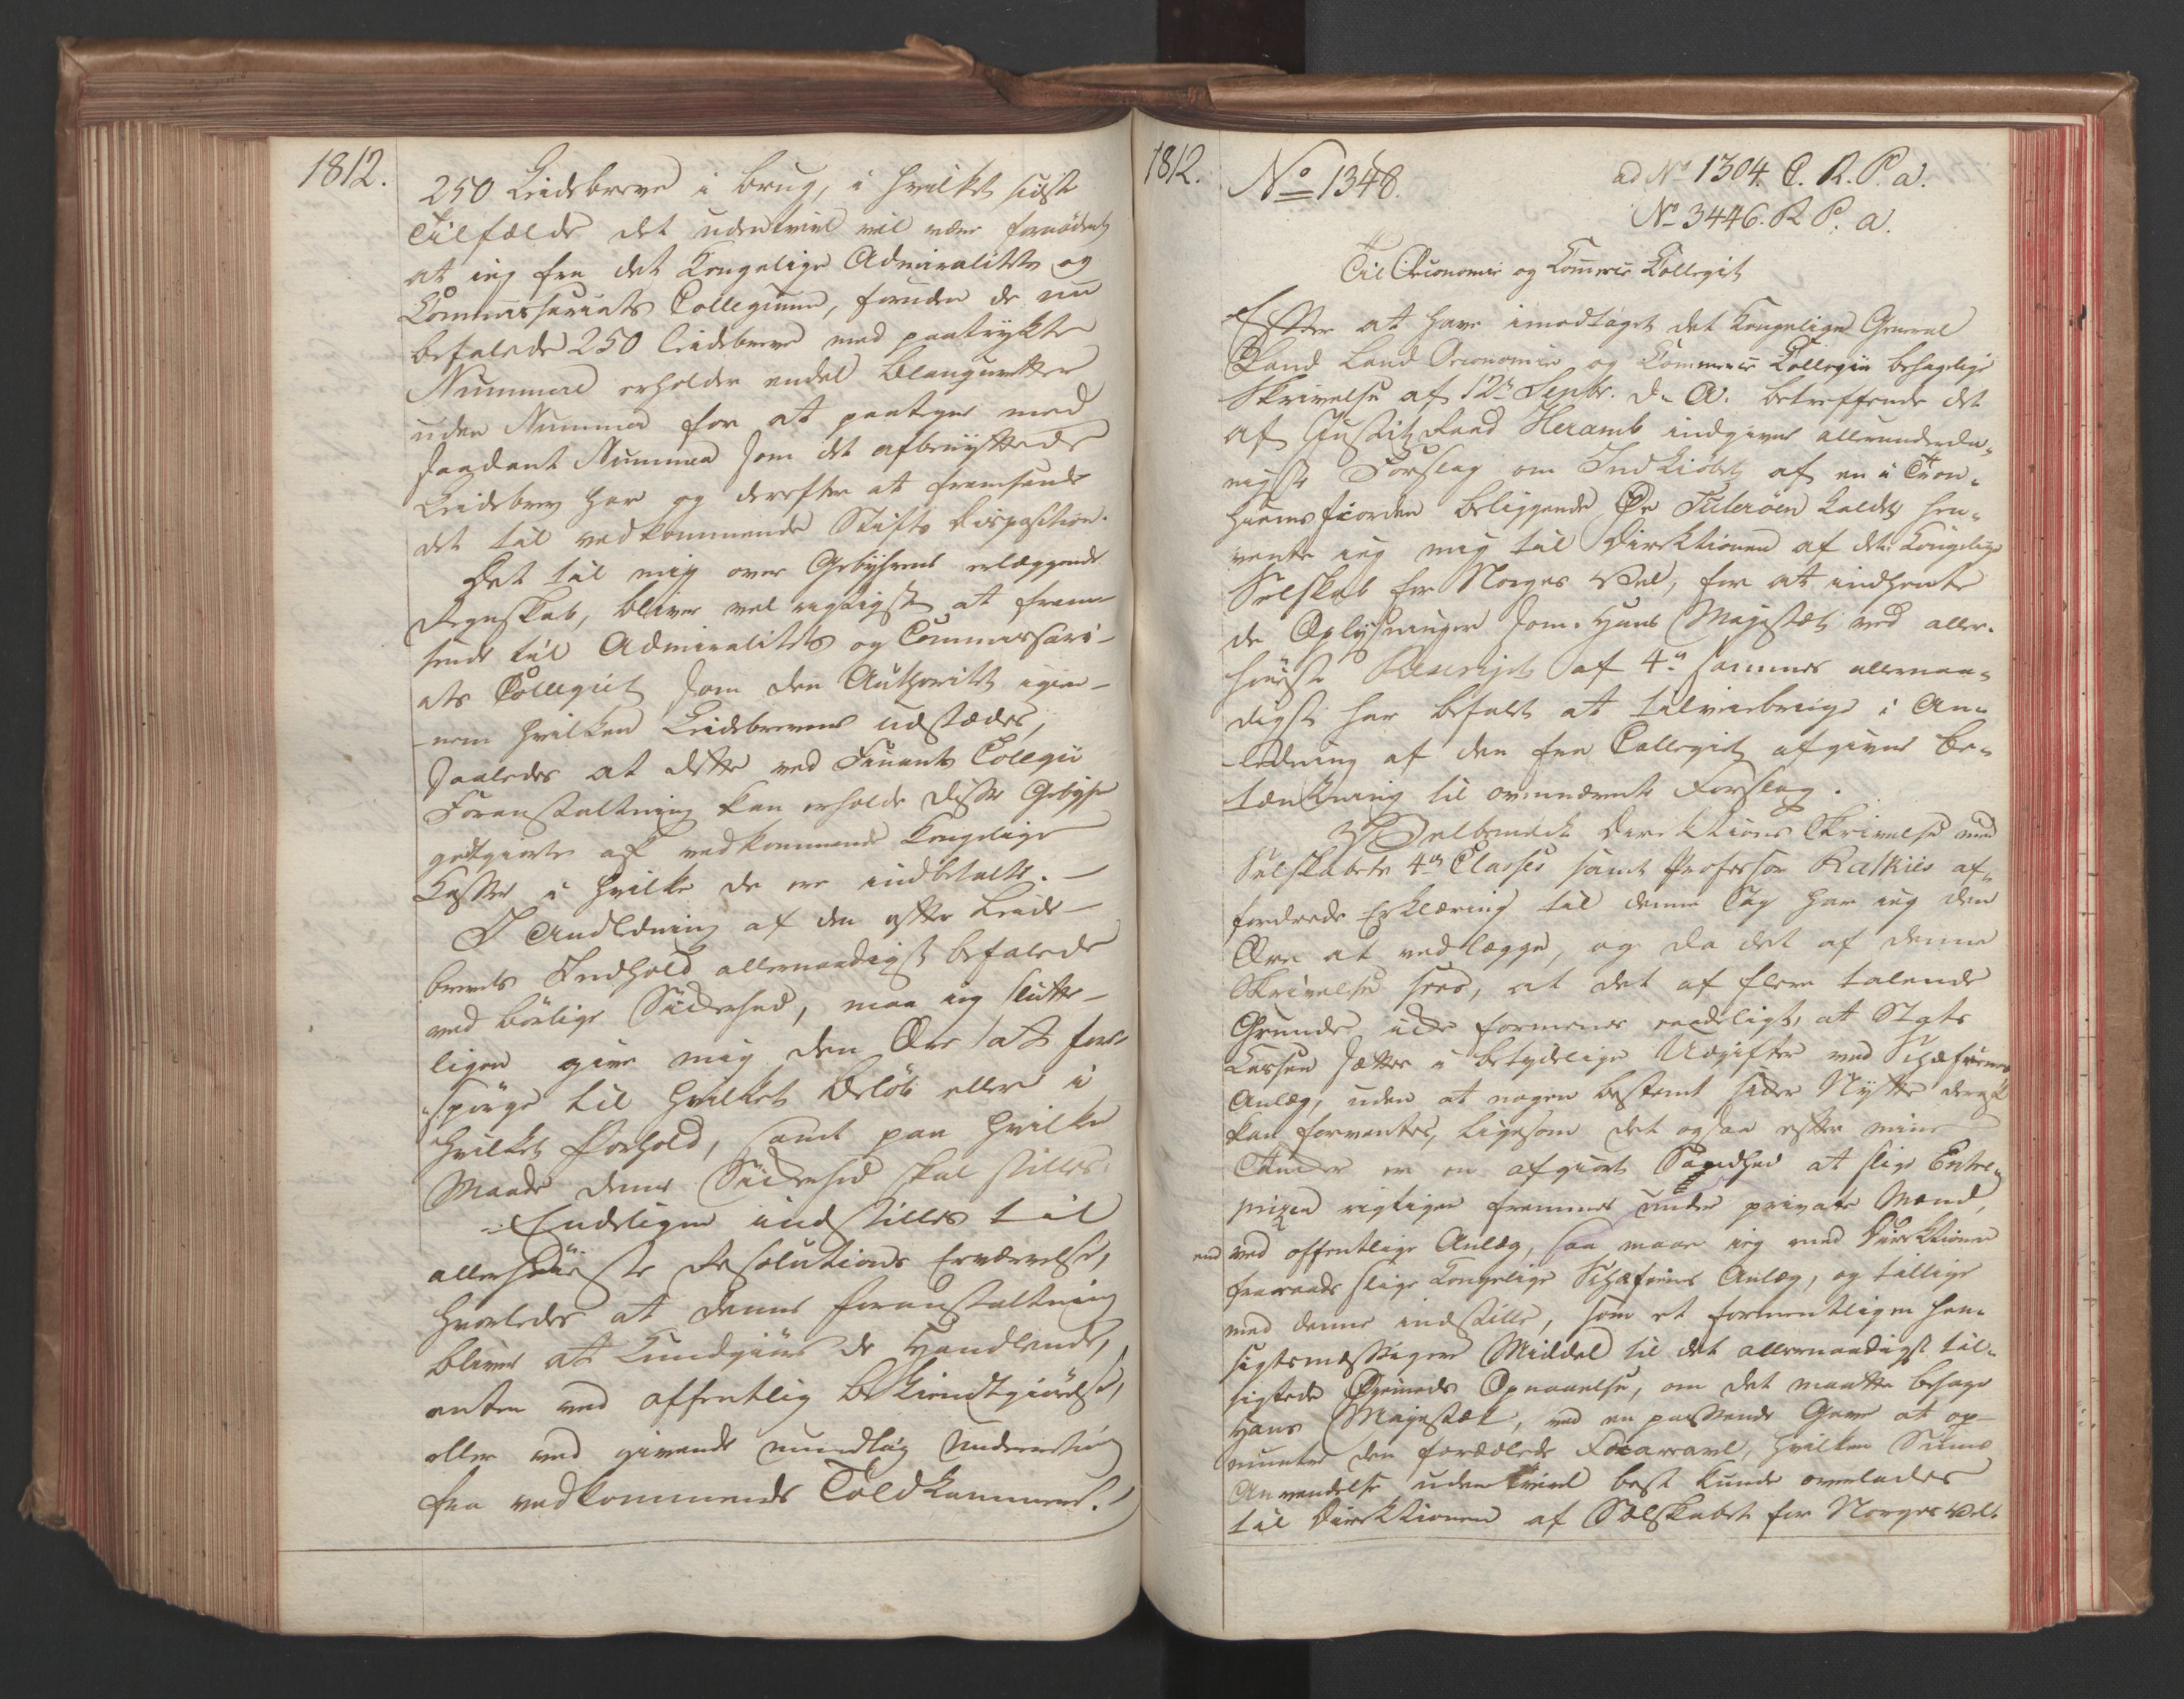 1812.
250 Leidebreve i Brug, i hvilket sidste
Tilfælde det udentvivl vil være fornødent
at ieg fra det Kongelige Admiralitets og
Commissariats Collegium, foruden de nu
befalede 250 Leidebreve med paatrykte
Nummere erholder endel Blanqvetter
uden Nummer for at paategne med
saadant Nummer som det afbenyttede
Leidebrev har og derefter at fremsende
det til vedkommende Stifts Disposition.
Det til mig over Gebyhrene erlæggende
Regnskab, bliver vel rigtigst at frem-
sende til Admiralitets og Commissari-
ats Collegiet som den Authoritet igien-
nem hvilken Leidebrevene udstædes,
saaledes at dette ved Finants Collegii
Foranstaltning kan erholde disse Gebyhr
godtgiorte af vedkommende Kongelige
Kasser i hvilke de ere indbetalte. -
I Anledning af den efter Leide-
brevets Indhold allernaadigst befalede
ved børlige Sikkerhed, maa ieg slutte-
ligen give mig den Ære at fore-
spørge til hvilket Beløb eller i
hvilket Forhold, samt paa hvilken
Maade denne Sikkerhed skal stilles.
Endeligen indstilles til
allerhøieste Resolutions Erværvelse,
hvorledes at denne Foranstaltning
bliver at kundgiøre de Handlende,
enten ved offentlig Bekiendtgiørelse,
eller ved givende mundtlig Underretning
fra vedkommende Toldkammere.
1812.
No 1348.
ad No 1304. C. R. P. a.
No 3446. R P. a.
Til Oeconomie og Commerce Collegiet
Efter at have imodtaget det Kongelige General
Land Oeconomie og Commerce Collegii behagelige
Skrivelse af 12te Septbr. d. A. betreffende det
af Justitz Raad Heramb indgivne allerunderda-
nigste Forslag om Indkiøbet af en i Tron-
hiemsfiorden beliggende Øe Tuterøen kaldet, hen-
vendte ieg mig til Direktionen af det Kongelige
Selskab for Norges Vel, for at indhente
de Oplysninger som Hans Majestæt ved aller-
høieste Rescript af 4de sammes allernaa-
digst har befalet at tilveiebringe i An-
ledning af den fra Collegiet afgivne Be-
tænkning til ovennævnte Forslag.
Velbemeldte Direktions Skrivelse med
Selskabets 4de Classes samt Professor Rathkes af-
fordrede Erklæring til denne Sag har ieg den
Ære at vedlægge, og da det af denne
Skrivelse sees, at det af flere talende
Grunde ikke formenes raadeligt, at Stats
Cassen sættes i betydelige Udgifter ved Schæferiers
Anlæg, uden at nogen bestemt sikker Nytte deraf
kan forventes, ligesom det ogsaa efter mine
Tanker er en afgiort Sandhed at slige Entre-
prizer rigtigen fremmes under private Mænd,
end ved offentlige Anlæg, saa maae ieg med Direktionen
fraraade slige Kongelige Schæferiers Anlæg, og tillige
med denne indstille, som et formentligen hen-
sigtsmæssigere Middel til det allernaadigst til-
sigtede Øiemeds Opnaaelse, om det maatte behage
Hans Majestæt, ved en passende Gave at op-
muntre den forædlede Faareavel, hvilken Summes
Anvendelse uden tvivl best kunde overlades
til Direktionen af Selskabet for Norges Vel.